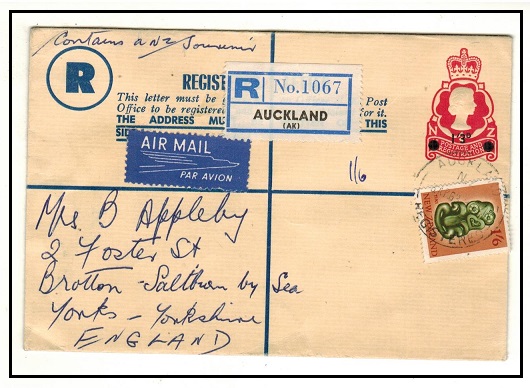 Contains a NZ Souvenir
R
REGIST
This letter must be
Post
Office to be registered
for it.
THE ADDRESS MU
THIS
SIDE
R No.1067
AUCKLAND
(AK)
AIR MAIL
PAR AVION
1/6
N Z
1'3D
POSTAGE AND
REGISTRATION
NEW ZEALAND
1/6
Mrs B Appleby
2 Foster St
Brotton - Saltburn by Sea
Yorks - Yorkshire
ENGLAND